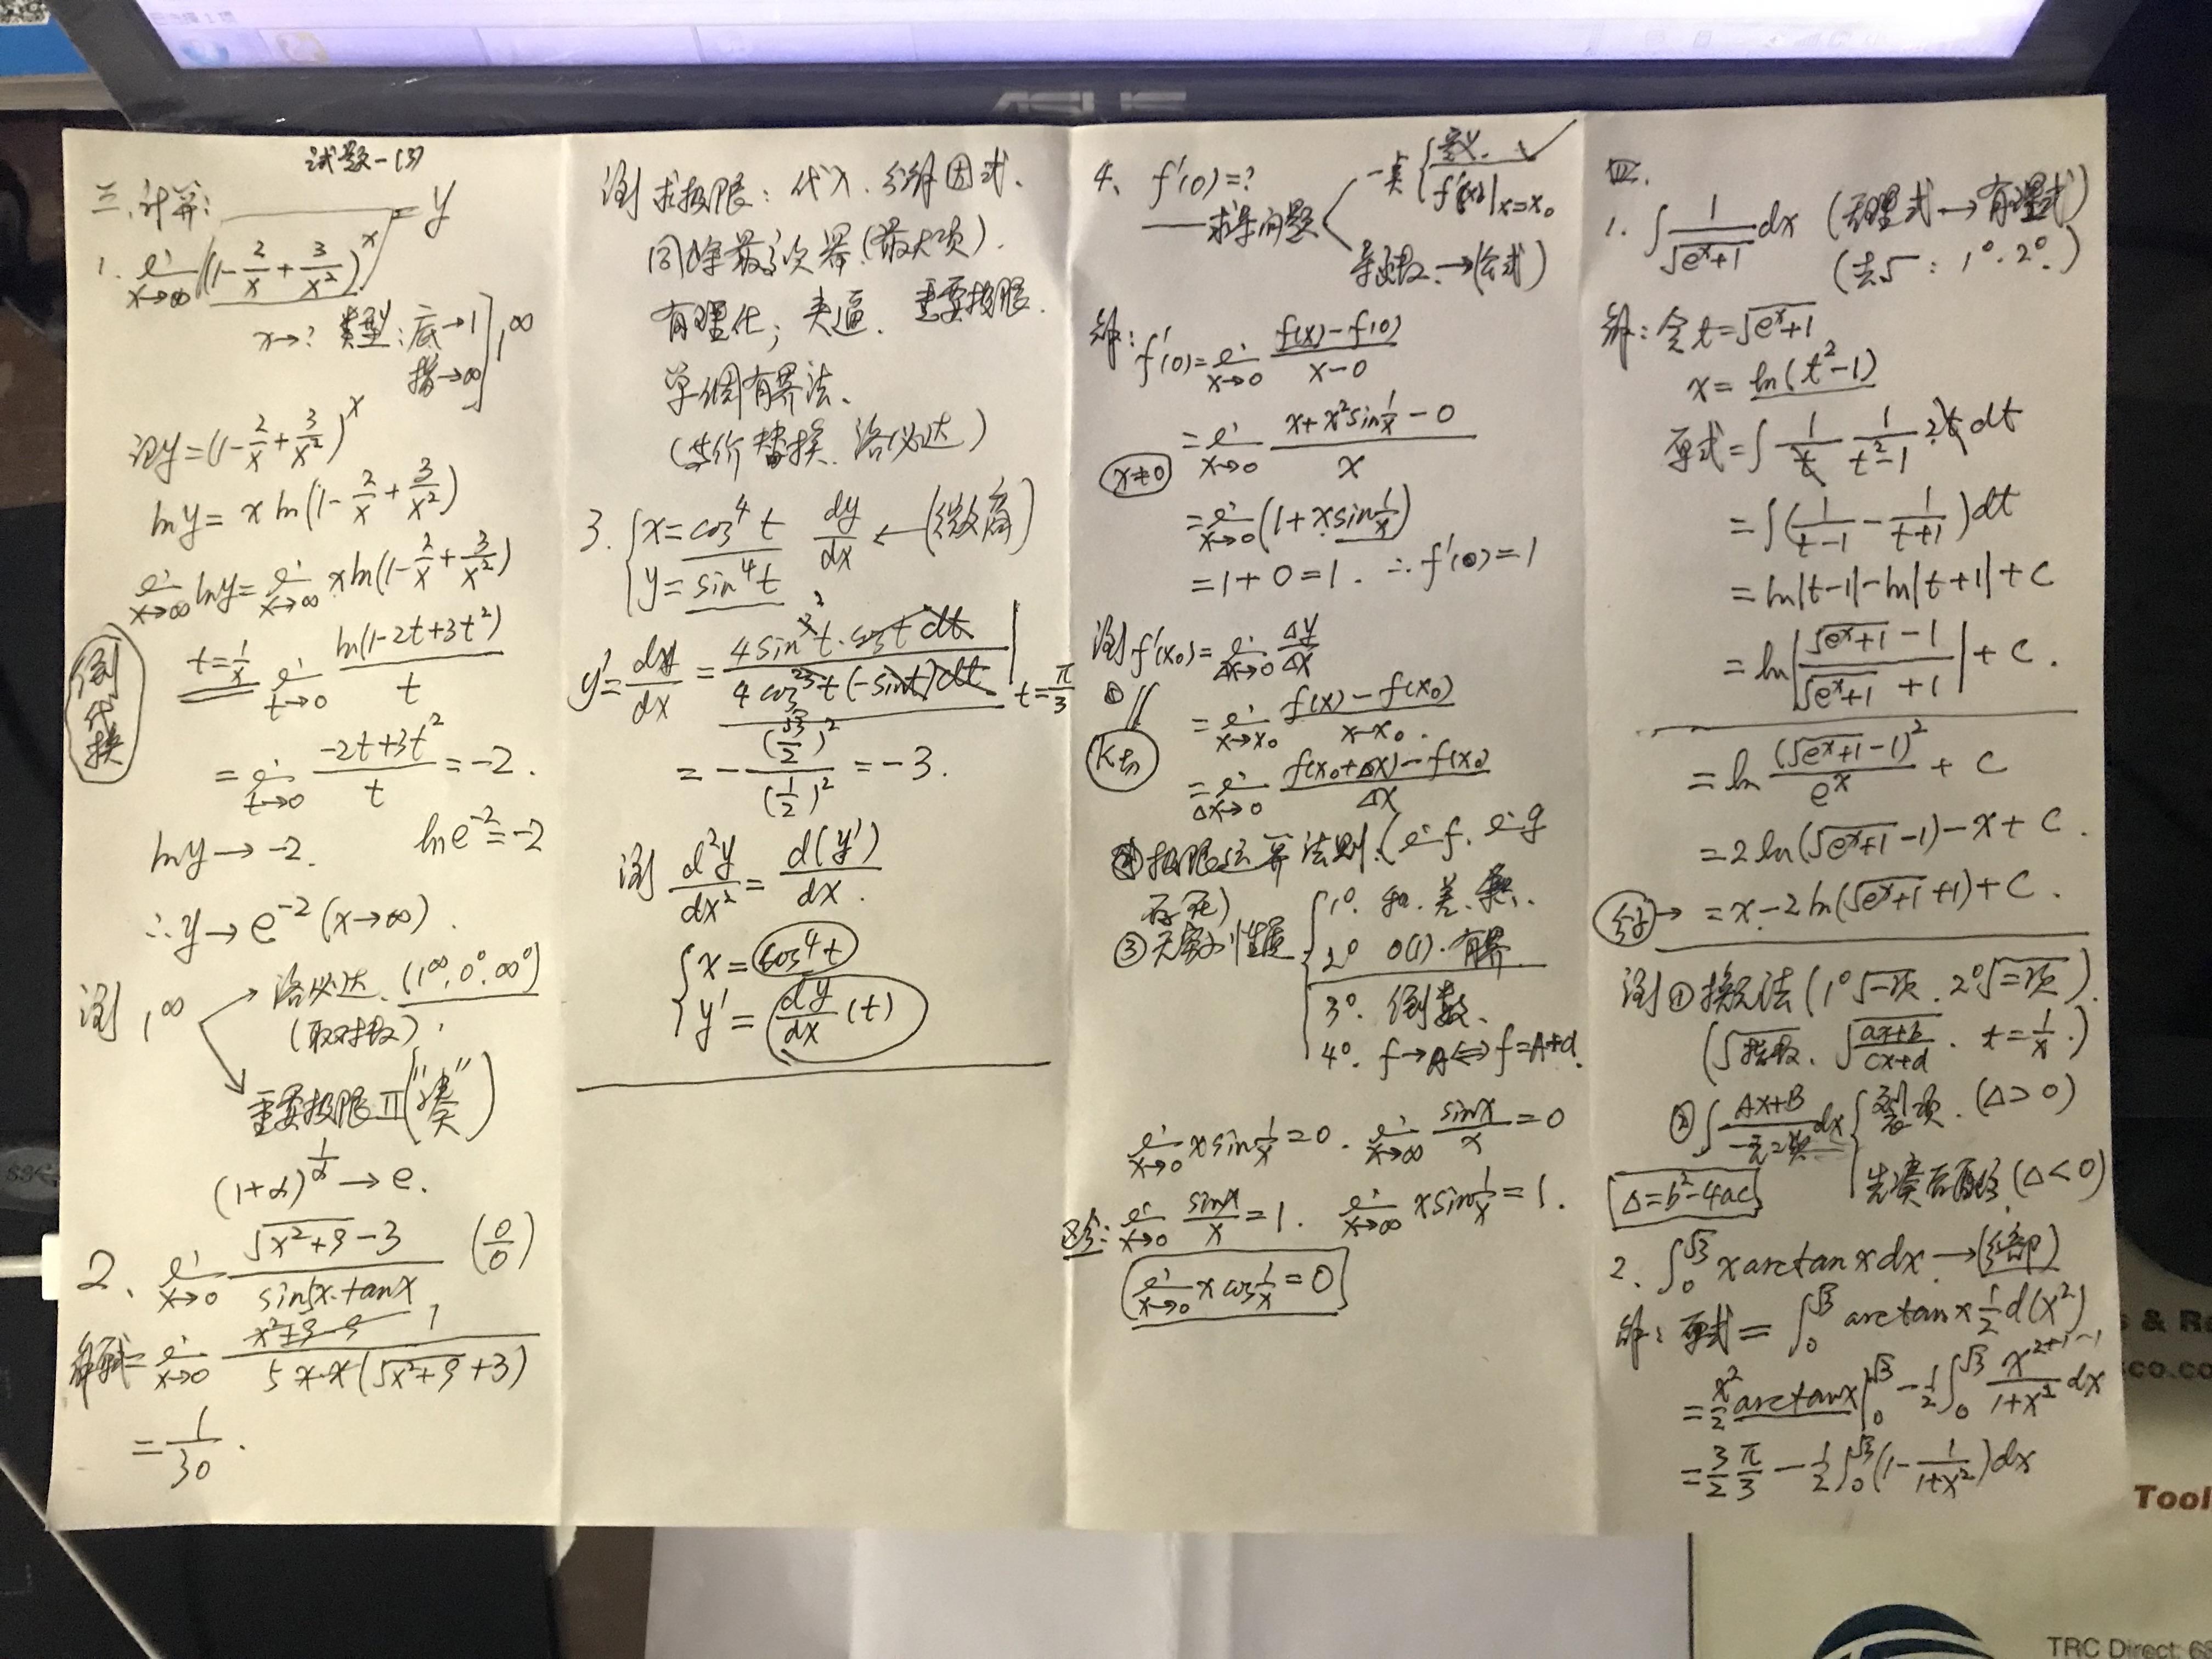 ASUS
试题-(3)
三.计算:
1. lim x→∞ (1-2/x+3/x²)^x = y
x→? 类型:底→1
指→∞ ] 1^∞
记y=(1-2/x+3/x²)^x
ln y= x ln(1-2/x+3/x²)
lim x→∞ ln y= lim x→∞ x ln(1-2/x+3/x²)
倒代换
t=1/x lim t→0 ln(1-2t+3t²)/t
= lim t→0 (-2t+3t²)/t =-2.
ln y→-2. ln e^-2=-2
∴y→e^-2 (x→∞).
注 1^∞ 洛必达.(1^∞.0^0.∞^0)
(取对数).
重要极限II("凑")
(1+α)^(1/α)→e.
2、 lim x→0 (√(x²+9)-3)/(sin5x·tanx) (0/0)
解:原式= lim x→0 (x²+9-9) 1/(5x·x(√(x²+9)+3))
=1/30.
注 求极限:代入.分解因式.
同除最高次幂.(最大项).
有理化;夹逼.重要极限.
单调有界法.
(等价替换.洛必达)
3. { x=cos⁴t dy/dx ←(微商)
y=sin⁴t
y'=dy/dx = 4sin³t·cost dt / 4cos³t(-sint)dt | t=π/3
= -(√3/2)²/(1/2)² =-3.
注 d²y/dx² = d(y')/dx.
{ x=cos⁴t
y'=dy/dx(t)
4、f'(0)=?
——求导问题
一点 { 定义. ✓
f'(x)|x=x₀
导函数.→(公式)
解:f'(0)= lim x→0 (f(x)-f(0))/(x-0)
= lim x→0 (x+x²sin1/x-0)/x
x≠0
= lim x→0 (1+x sin1/x)
=1+0=1. ∴f'(0)=1
注 f'(x₀)= lim Δx→0 Δy/Δx
① ∥
K切
= lim x→x₀ (f(x)-f(x₀))/(x-x₀).
= lim Δx→0 (f(x₀+Δx)-f(x₀))/Δx
②极限运算法则.(lim f. lim g
存在)
③无穷小性质 { 1° 和.差.乘.
2° o(1)·有界
3° 倒数.
4° f→A⟺f=A+α.
lim x→0 x sin1/x=0. lim x→∞ sinx/x=0
区分: lim x→0 sinx/x=1. lim x→∞ x sin1/x=1.
lim x→0 x cos1/x=0
四.
1. ∫1/√(e^x+1) dx (无理式→有理式)
(去√:1°.2°.)
解:令t=√(e^x+1)
x=ln(t²-1)
原式=∫1/t 1/(t²-1) 2t dt
=∫(1/(t-1)-1/(t+1))dt
=ln|t-1|-ln|t+1|+C
=ln|(√(e^x+1)-1)/(√(e^x+1)+1)|+C.
=ln (√(e^x+1)-1)²/e^x+C
=2ln(√(e^x+1)-1)-x+C.
=x-2ln(√(e^x+1)+1)+C.
注①换元法(1°√一项.2°√二项).
(√指数.√((ax+b)/(cx+d)).t=1/x.)
②∫(Ax+B)/一元二次 dx { 裂项.(Δ>0)
先凑后配方(Δ<0)
Δ=b²-4ac
2、∫₀^√3 x arctanx dx.→(分部)
解:原式=∫₀^√3 arctanx 1/2 d(x²)
=x²/2 arctanx|₀^√3 -1/2∫₀^√3 (x²+1-1)/(1+x²) dx
=3/2 π/3 -1/2∫₀^√3(1-1/(1+x²))dx
s & Ra
sco.co
Tool
TRC Direct 68